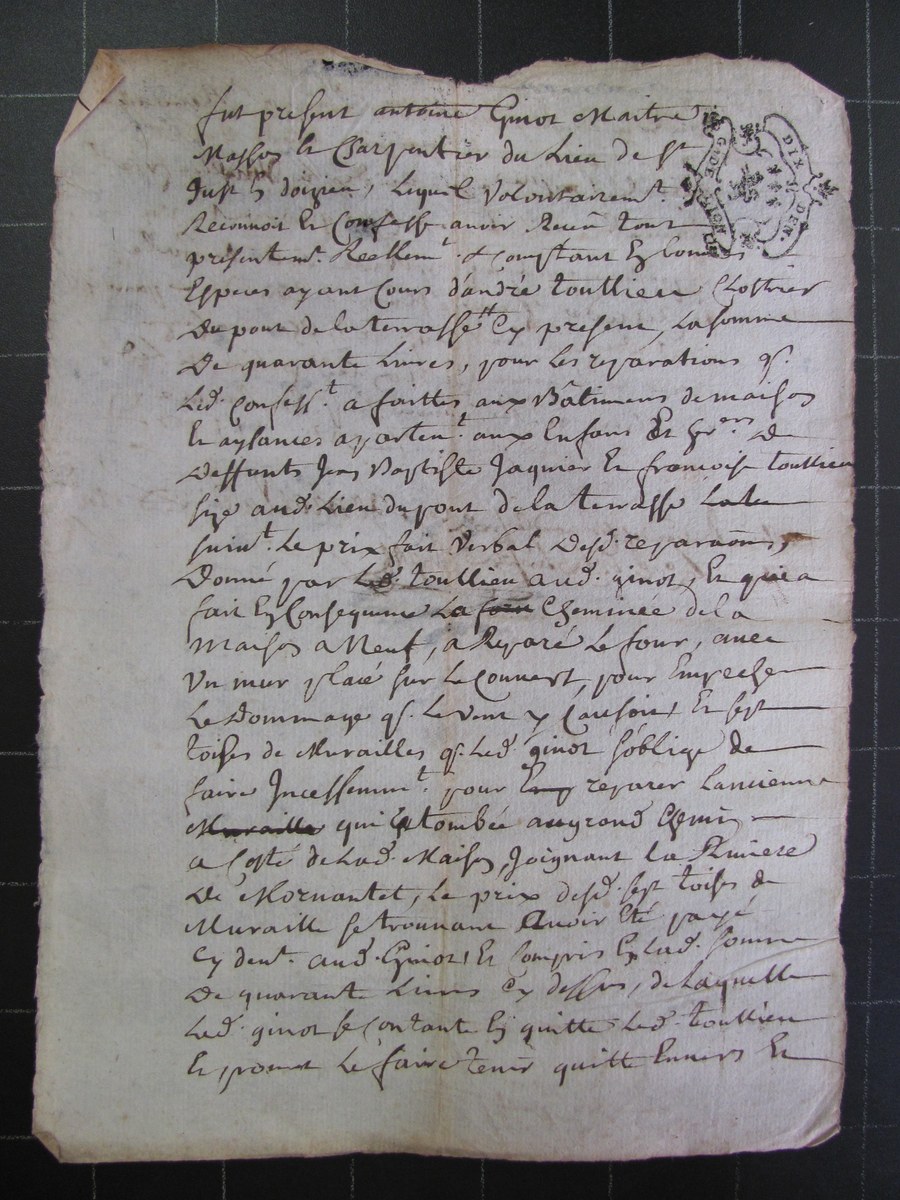 fut present antoine Ginot Maitre
Masson et Charpentier du Lieu de St
Just en doizieu, Lequel Volontairemt.
Reconnoit et Confesse avoir Receu tout
presentemt. Reellemt. & comptant En bonnes
Especes ayant Cours d'andré toullieu
du pont de la terrasse Cy present, La somme
De quarante Livres, pour les reparations q.
Led. Confesst. a faittes aux Bâtimens de maison
Et aysances apartent. aux Enfans Et hrers. de
Deffunts Jean Baptiste Jaquier Et francoise toullieu
size aud. Lieu du pont de la terrasse
suivt. Le prix fait Verbal desd. reparaons,
Donné par Led. toullieu aud. ginot, Et qui a
fait En Consequence La Cheminée de la
Maison a Neuf, a Reparé Le four, avec
Un mur placé sur Le Couvert, pour Empecher
Le Dommage q. Le vent y Causoit, Et sept
toises de Murailles q. Led. ginot s'oblige de
faire Incessemmt. pour reparer Lancienne
Muraille qui Est tombée au grand Chemin
a Costé de Lad. Maison, Joignant La Riviere
De Mornantet, Le prix desd. sept toises de
Muraille se trouvant Avoir Eté payé
Cy devt. aud. Ginot, Et Compris En Lad. somme
De quarante Livres Cy dessus, de Laquelle
Led. ginot se contante En quitte Led. toullieu
Et promet Le faire tenir quitte Envers Et
G. DE
DIX DEN.